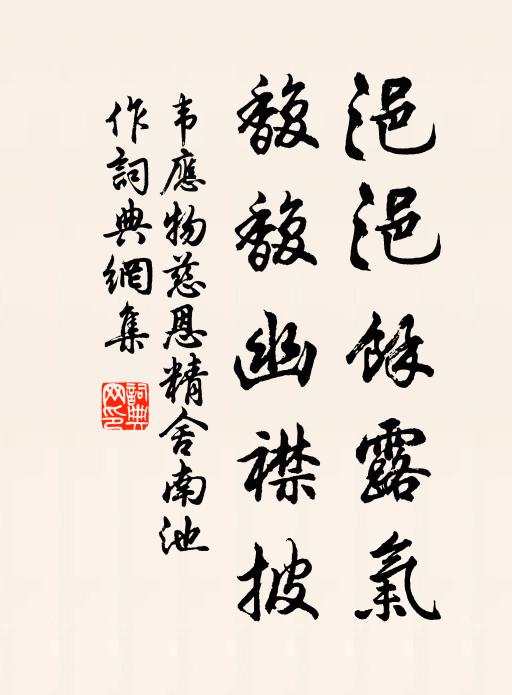 浥浥餘露氣
馥馥幽襟披
韦應物慈恩精舍南池
作詞典網集
詞典網印